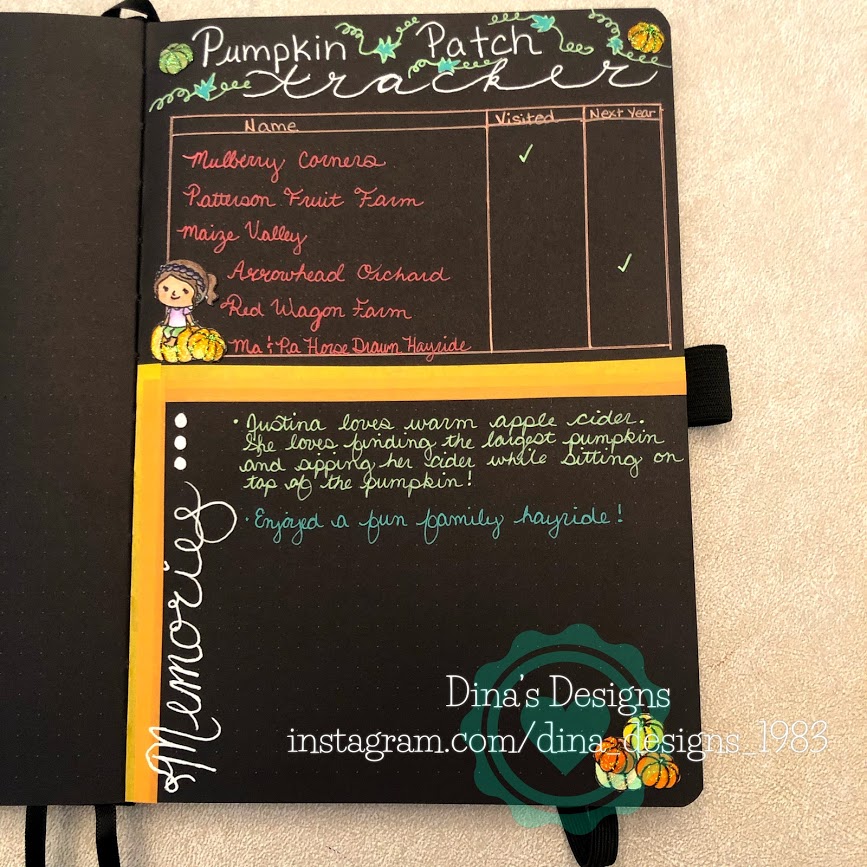 Pumpkin Patch
tracker
Name Visited Next Year
Mulberry Corners ✓
Patterson Fruit Farm
Maize Valley
Arrowhead Orchard ✓
Red Wagon Farm
Ma & Pa Horse Drawn Hayride
Memories
• Justina loves warm apple cider.
She loves finding the largest pumpkin
and sipping her cider while sitting on
top of the pumpkin!
• Enjoyed a fun family hayride!
Dina's Designs
instagram.com/dina_designs_1983